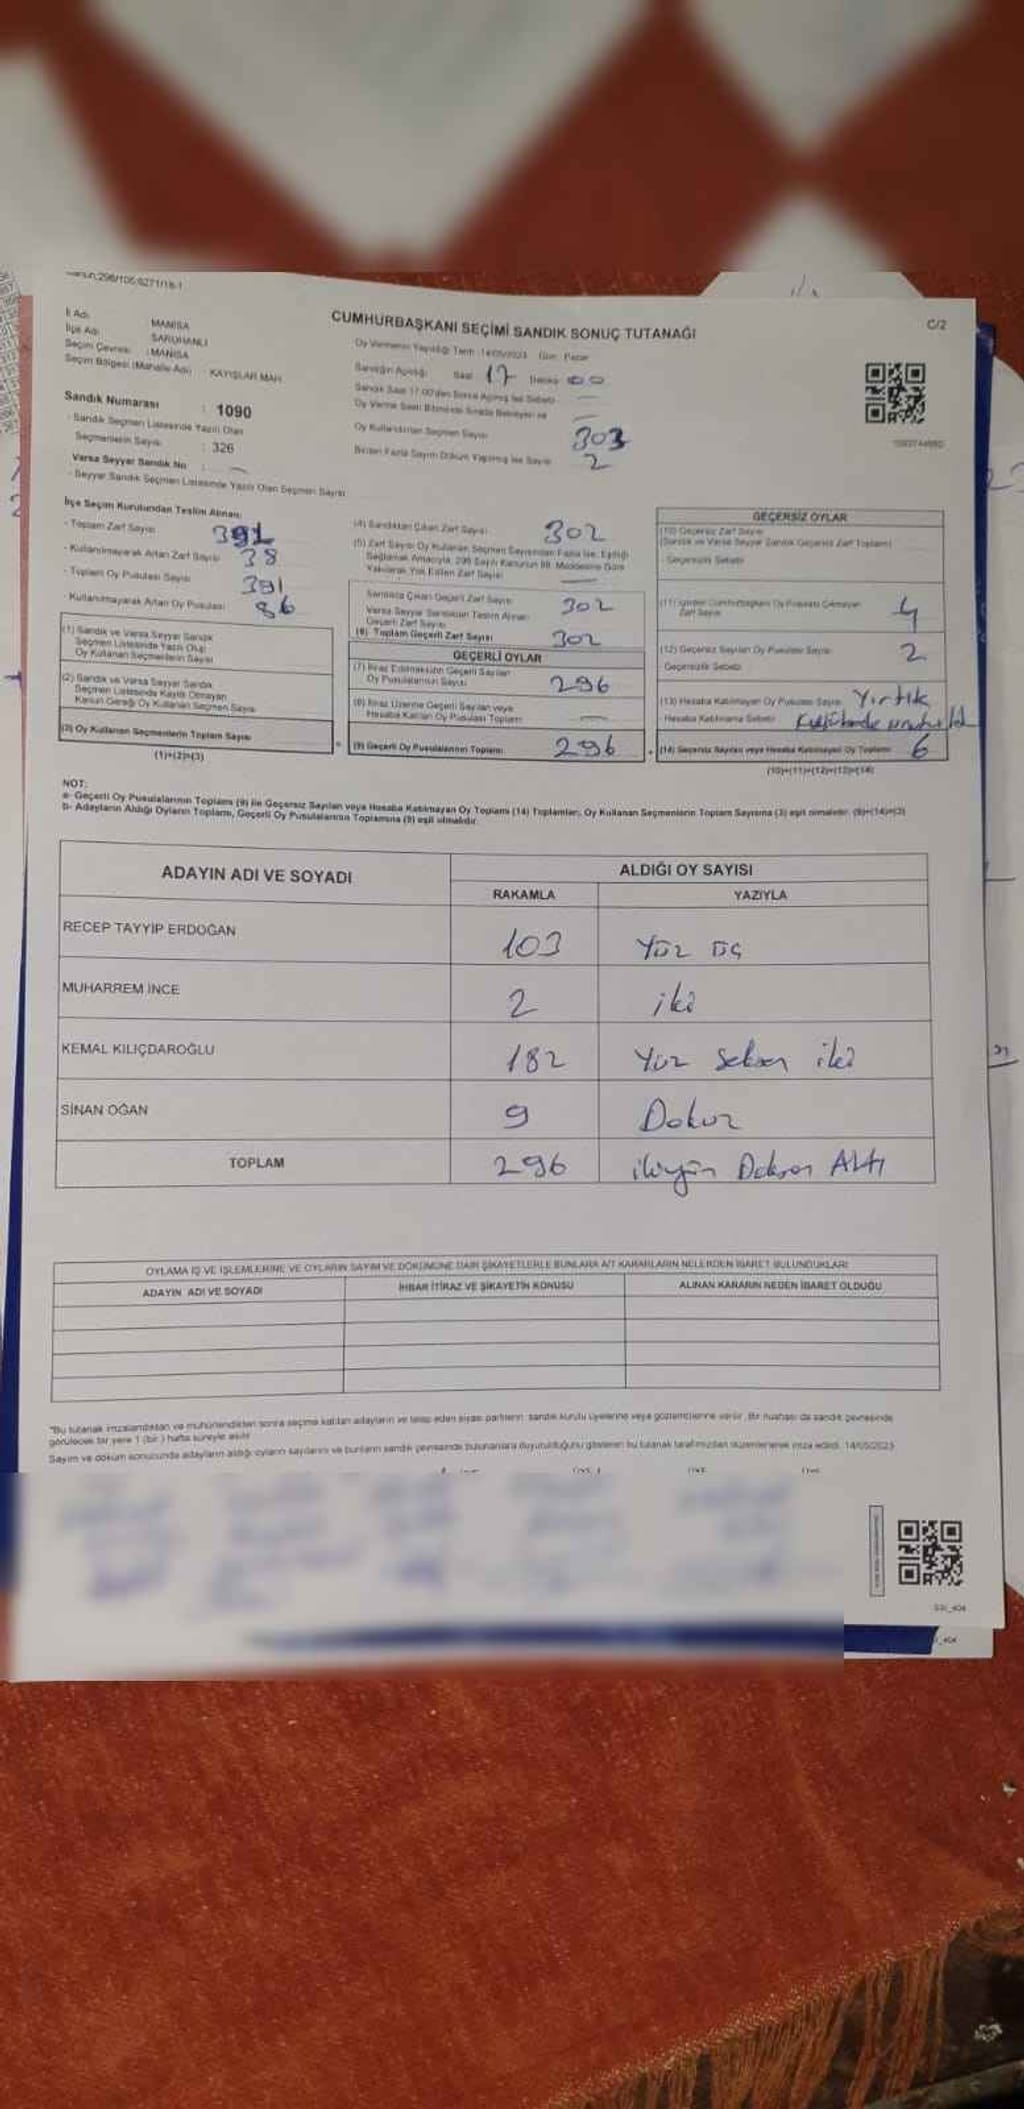 C/2
CUMHURBAŞKANI SEÇİMİ SANDIK SONUÇ TUTANAĞI
İl Adı MANİSA
İlçe Adı SARUHANLI
Seçim Çevresi :MANİSA
Seçim Bölgesi (Mahalle Adı) : KAYIŞLAR MAH
Sandık Numarası : 1090
- Sandık Seçmen Listesinde Yazılı Olan
Seçmenlerin Sayısı : 326
Varsa Seyyar Sandık No : —
- Seyyar Sandık Seçmen Listesinde Yazılı Olan Seçmen Sayısı
Oy Vermenin Yapıldığı Tarih : 14/05/2023 Gün: Pazar
Sandığın Açıldığı Saat 17 Dakika 00
Oy Kullandırılan Seçmen Sayısı 303
Birden Fazla Sayım Döküm Yapılmış İse Sayısı 2
İlçe Seçim Kurulundan Teslim Alınan:
- Toplam Zarf Sayısı 391
- Kullanılmayarak Artan Zarf Sayısı 38
- Toplam Oy Pusulası Sayısı 391
- Kullanılmayarak Artan Oy Pusulası 86
(1) Sandık ve Varsa Seyyar Sandık
Seçmen Listesinde Yazılı Olup
Oy Kullanan Seçmenlerin Sayısı
(2) Sandık ve Varsa Seyyar Sandık
Seçmen Listesinde Kayıtlı Olmayan
Kanun Gereği Oy Kullanan Seçmen Sayısı
(3) Oy Kullanan Seçmenlerin Toplam Sayısı
(1)+(2)=(3)
(4) Sandıktan Çıkan Zarf Sayısı 302
(5) Zarf Sayısı Oy Kullanan Seçmen Sayısından Fazla İse, Eşitliği
Sağlamak Amacıyla, 298 Sayılı Kanunun 98. Maddesine Göre
Yakılarak Yok Edilen Zarf Sayısı —
Sandıkta Çıkan Geçerli Zarf Sayısı 302
Varsa Seyyar Sandıktan Teslim Alınan
Geçerli Zarf Sayısı
(6) Toplam Geçerli Zarf Sayısı 302
GEÇERLİ OYLAR
(7) İtiraz Edilmeksizin Geçerli Sayılan
Oy Pusulalarının Sayısı 296
(8) İtiraz Üzerine Geçerli Sayılan veya
Hesaba Katılan Oy Pusulası Toplamı —
(9) Geçerli Oy Pusulalarının Toplamı 296
GEÇERSİZ OYLAR
(10) Geçersiz Zarf Sayısı
(Sandık ve Varsa Seyyar Sandık Geçersiz Zarf Toplamı)
Geçersizlik Sebebi
(11) İçinden Cumhurbaşkanı Oy Pusulası Çıkmayan
Zarf Sayısı 4
(12) Geçersiz Sayılan Oy Pusulası Sayısı 2
Geçersizlik Sebebi
(13) Hesaba Katılmayan Oy Pusulası Sayısı Yırtık
Hesaba Katılmama Sebebi
(14) Geçersiz Sayılan veya Hesaba Katılmayan Oy Toplamı 6
(10)+(11)+(12)+(13)=(14)
NOT:
a- Geçerli Oy Pusulalarının Toplamı (9) ile Geçersiz Sayılan veya Hesaba Katılmayan Oy Toplamı (14) Toplamları, Oy Kullanan Seçmenlerin Toplam Sayısına (3) eşit olmalıdır. (9)+(14)=(3)
b- Adayların Aldığı Oyların Toplamı, Geçerli Oy Pusulalarının Toplamına (9) eşit olmalıdır.
ADAYIN ADI VE SOYADI ALDIĞI OY SAYISI
RAKAMLA YAZIYLA
RECEP TAYYİP ERDOĞAN 103 Yüz üç
MUHARREM İNCE 2 iki
KEMAL KILIÇDAROĞLU 182 Yüz seksen iki
SİNAN OĞAN 9 Dokuz
TOPLAM 296 ikiyüz Doksan Altı
OYLAMA İŞ VE İŞLEMLERİNE VE OYLARIN SAYIM VE DÖKÜMÜNE DAİR ŞİKAYETLERLE BUNLARA AİT KARARLARIN NELERDEN İBARET BULUNDUKLARI
ADAYIN ADI VE SOYADI İHBAR İTİRAZ VE ŞİKAYETİN KONUSU ALINAN KARARIN NEDEN İBARET OLDUĞU
*Bu tutanak imzalandıktan ve mühürlendikten sonra seçime katılan adayların ve talep eden siyasi partilerin sandık kurulu üyelerine veya gözlemcilerine verilir. Bir nüshası da sandık çevresinde
görülecek bir yere 1 (bir) hafta süreyle asılır
Sayım ve döküm sonucunda adayların aldığı oyların sayılarını ve bunların sandık çevresinde bulunanlara duyurulduğunu gösteren bu tutanak tarafımızdan düzenlenerek imza edildi. 14/05/2023